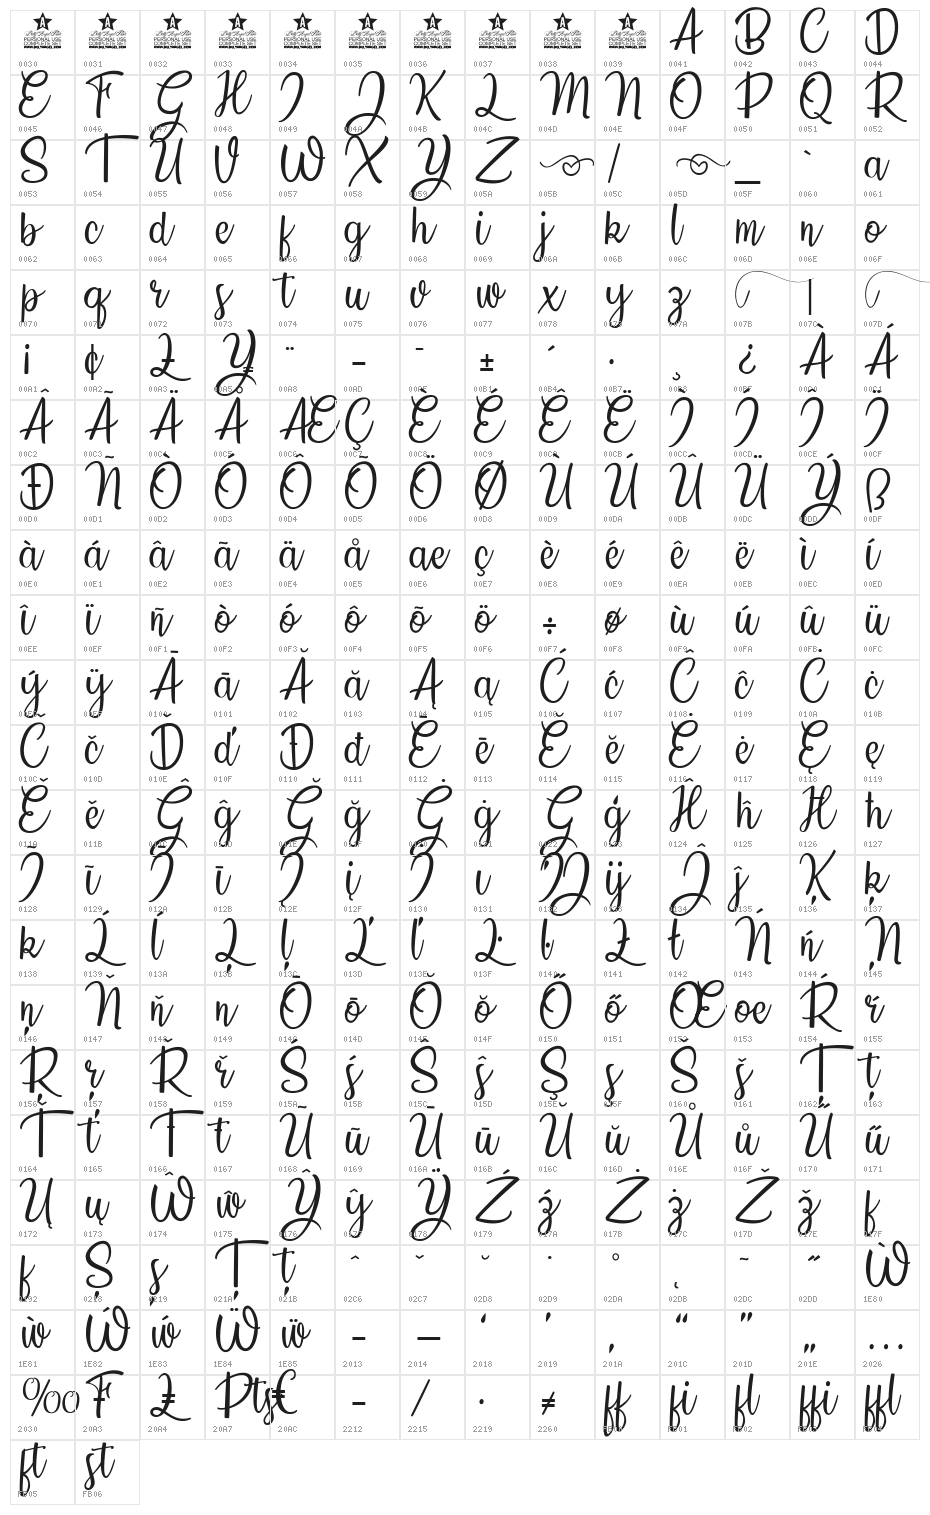 A B C D
PERSONAL USE PERSONAL USE PERSONAL USE PERSONAL USE PERSONAL USE PERSONAL USE PERSONAL USE PERSONAL USE PERSONAL USE PERSONAL USE
COMPLETE SET COMPLETE SET COMPLETE SET COMPLETE SET COMPLETE SET COMPLETE SET COMPLETE SET COMPLETE SET COMPLETE SET COMPLETE SET
0030 0031 0032 0033 0034 0035 0036 0037 0038 0039 0041 0042 0043 0044
E F G H I J K L M N O P Q R
0045 0046 0047 0048 0049 004A 004B 004C 004D 004E 004F 0050 0051 0052
S T U V W X Y Z / _ ` a
0053 0054 0055 0056 0057 0058 0059 005A 005B 005C 005D 005F 0060 0061
b c d e f g h i j k l m n o
0062 0063 0064 0065 0066 0067 0068 0069 006A 006B 006C 006D 006E 006F
p q r s t u v w x y z |
0070 0071 0072 0073 0074 0075 0076 0077 0078 0079 007A 007B 007C 007D
¡ ¢ £ ¥ ¨ - ¯ ± ´ · ¸ ¿ À Á
00A1 00A2 00A3 00A5 00A8 00AD 00AF 00B1 00B4 00B7 00B8 00BF 00C0 00C1
Â Ã Ä Å Æ Ç È É Ê Ë Ì Í Î Ï
00C2 00C3 00C4 00C5 00C6 00C7 00C8 00C9 00CA 00CB 00CC 00CD 00CE 00CF
Ð Ñ Ò Ó Ô Õ Ö Ø Ù Ú Û Ü Ý ß
00D0 00D1 00D2 00D3 00D4 00D5 00D6 00D8 00D9 00DA 00DB 00DC 00DD 00DF
à á â ã ä å æ ç è é ê ë ì í
00E0 00E1 00E2 00E3 00E4 00E5 00E6 00E7 00E8 00E9 00EA 00EB 00EC 00ED
î ï ñ ò ó ô õ ö ÷ ø ù ú û ü
00EE 00EF 00F1 00F2 00F3 00F4 00F5 00F6 00F7 00F8 00F9 00FA 00FB 00FC
ý ÿ Ā ā Ă ă Ą ą Ć ć Ĉ ĉ Ċ ċ
00FD 00FF 0100 0101 0102 0103 0104 0105 0106 0107 0108 0109 010A 010B
Č č Ď ď Đ đ Ē ē Ĕ ĕ Ė ė Ę ę
010C 010D 010E 010F 0110 0111 0112 0113 0114 0115 0116 0117 0118 0119
Ě ě Ĝ ĝ Ğ ğ Ġ ġ Ģ ģ Ĥ ĥ Ħ ħ
011A 011B 011C 011D 011E 011F 0120 0121 0122 0123 0124 0125 0126 0127
Ĩ ĩ Ī ī Į į İ ı Ĳ ĳ Ĵ ĵ Ķ ķ
0128 0129 012A 012B 012E 012F 0130 0131 0132 0133 0134 0135 0136 0137
ĸ Ĺ ĺ Ļ ļ Ľ ľ Ŀ ŀ Ł ł Ń ń Ņ
0138 0139 013A 013B 013C 013D 013E 013F 0140 0141 0142 0143 0144 0145
ņ Ň ň ŉ Ō ō Ŏ ŏ Ő ő Œ œ Ŕ ŕ
0146 0147 0148 0149 014C 014D 014E 014F 0150 0151 0152 0153 0154 0155
Ŗ ŗ Ř ř Ś ś Ŝ ŝ Ş ş Š š Ţ ţ
0156 0157 0158 0159 015A 015B 015C 015D 015E 015F 0160 0161 0162 0163
Ť ť Ŧ ŧ Ũ ũ Ū ū Ŭ ŭ Ů ů Ű ű
0164 0165 0166 0167 0168 0169 016A 016B 016C 016D 016E 016F 0170 0171
Ų ų Ŵ ŵ Ŷ ŷ Ÿ Ź ź Ż ż Ž ž ſ
0172 0173 0174 0175 0176 0177 0178 0179 017A 017B 017C 017D 017E 017F
ƒ Ș ș Ț ț ˆ ˇ ˘ ˙ ˚ ˛ ˜ ˝ Ẁ
0192 0218 0219 021A 021B 02C6 02C7 02D8 02D9 02DA 02DB 02DC 02DD 1E80
ẁ Ẃ ẃ Ẅ ẅ – — ‘ ’ ‚ “ ” „ …
1E81 1E82 1E83 1E84 1E85 2013 2014 2018 2019 201A 201C 201D 201E 2026
‰ ₣ ₤ ₧ € − ∕ ∙ ≠ ﬀ ﬁ ﬂ ﬃ ﬄ
2030 20A3 20A4 20A7 20AC 2212 2215 2219 2260 FB00 FB01 FB02 FB03 FB04
ﬅ ﬆ
FB05 FB06